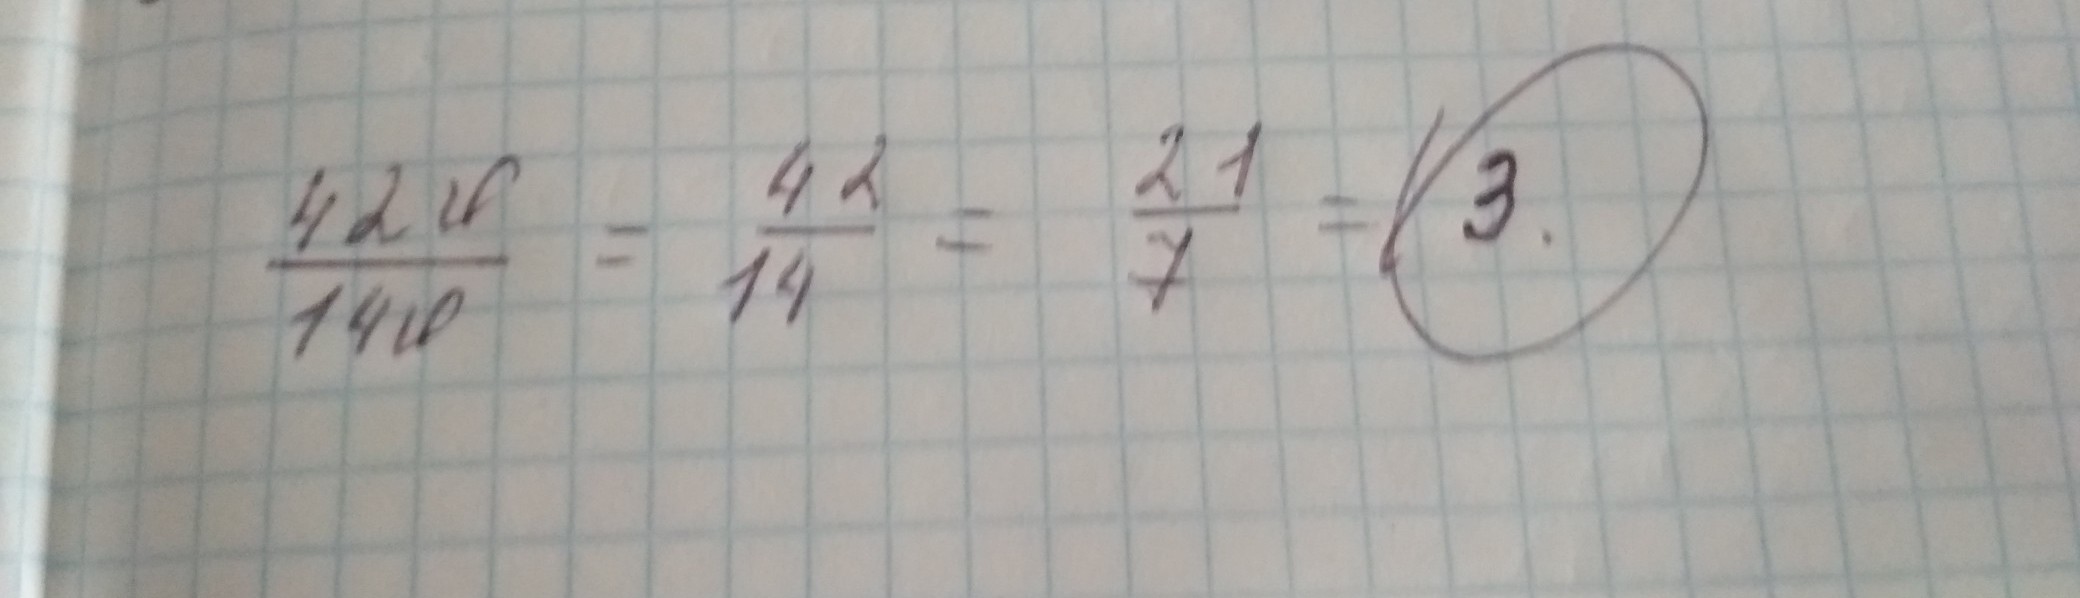 42φ/14φ = 42/14 = 21/7 = 3.